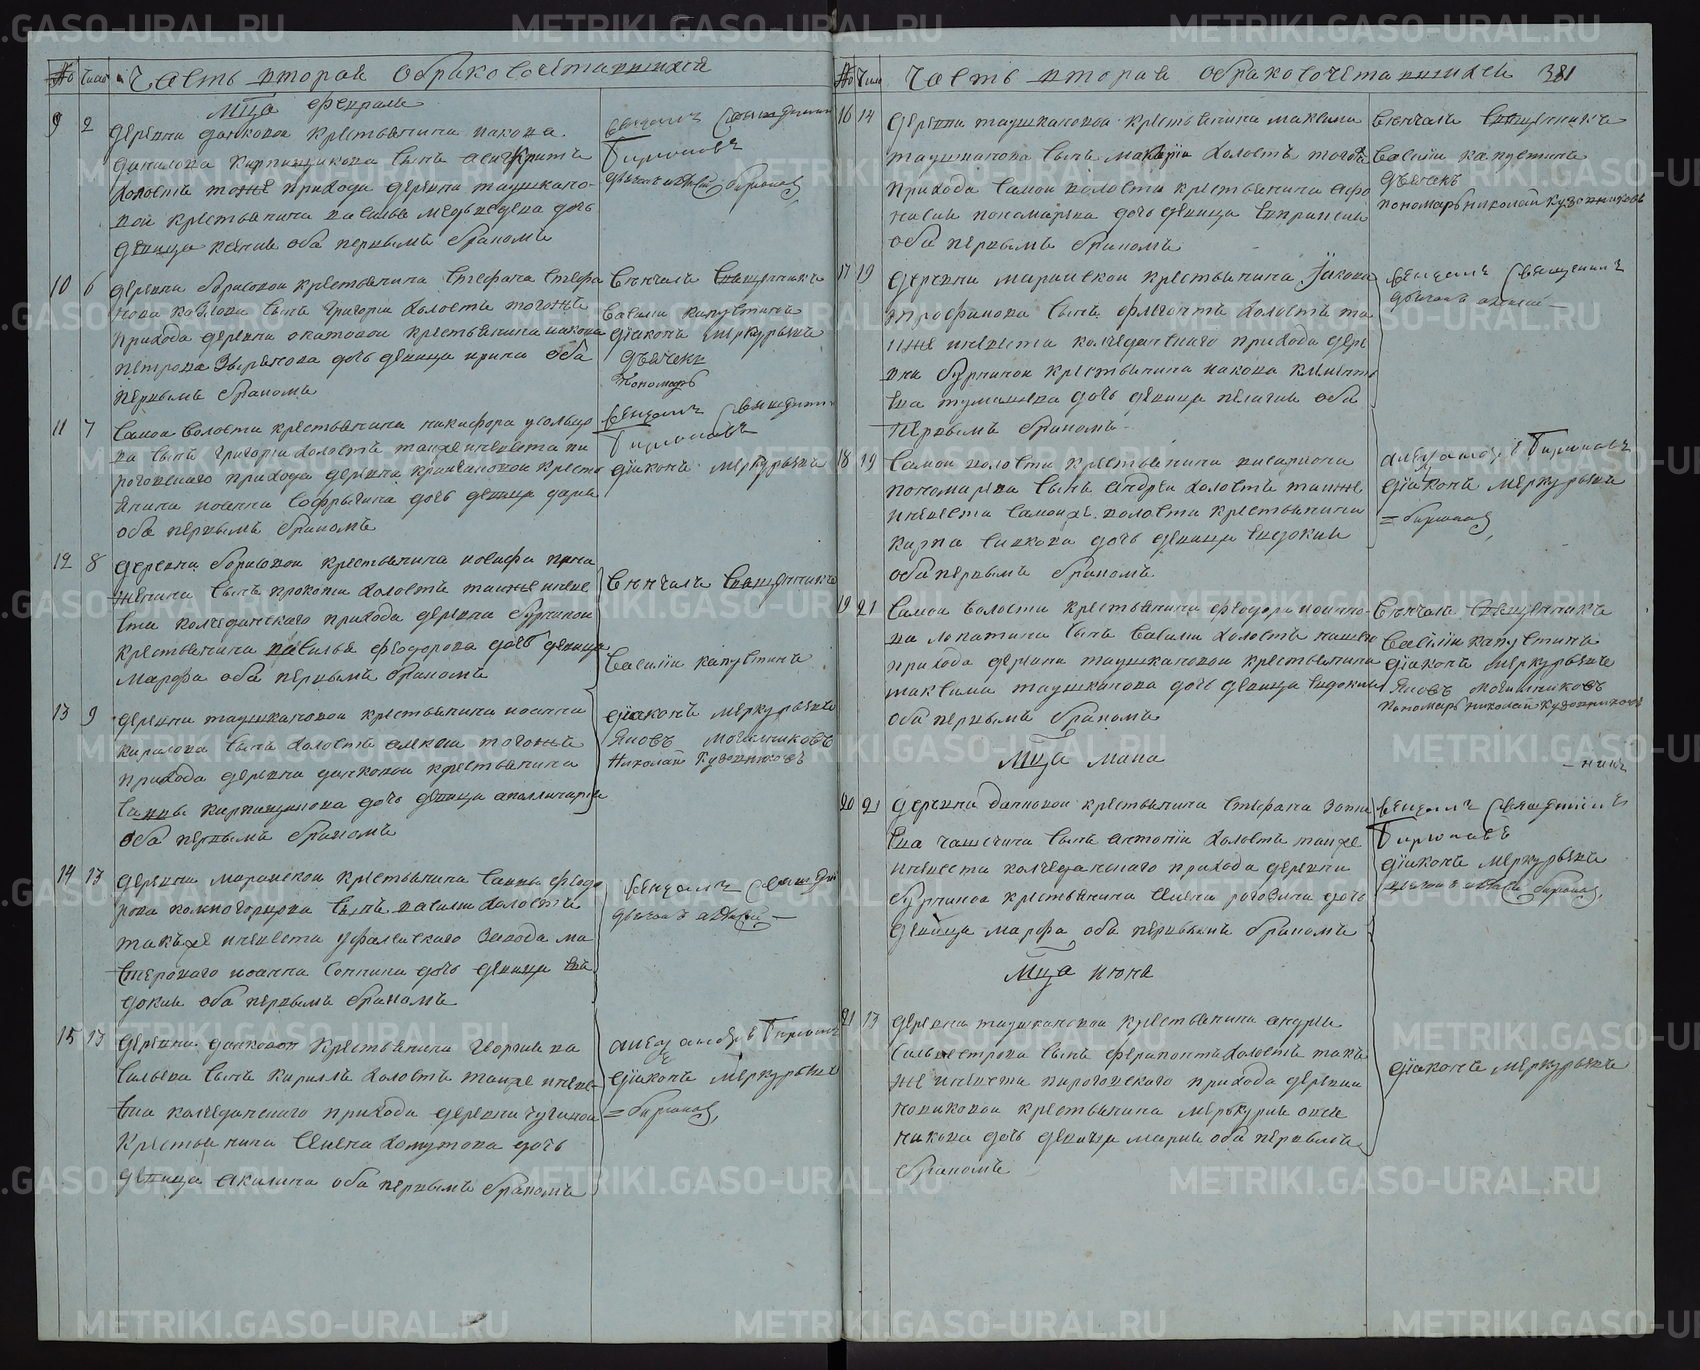 № Число Часть вторая о бракосочетавшихся
Мца февраля
9 2 Деревни Данковой крестьянина Иакова
Данилова Кирпищикова сынъ Асигкритъ
холостъ тоже прихода деревни Таушкано-
вой крестьянина Василья Медведева дочь
девица Ксения оба первымъ бракомъ
Венчалъ Священник
Бирюковъ
дьячекъ Алексей Бирюков
10 6 Деревни Борисовой крестьянина Стефана Стефа
нова сынъ Григорий холостъ того же
прихода деревни Окатовой крестьянина Иакова
Петрова Зырянова дочь девица Ирина оба
первымъ бракомъ
Венчали Священникъ
Василий Капустинъ
Диаконъ Меркурьевъ
Дьячекъ
Пономарь
11 7 Самой волости крестьянина Никифора Усольцо
ва сынъ Григорий холостъ также невеста Пи
роговскаго прихода деревни крестья
янина Иоанна Софрыгина дочь девица Дарья
оба первымъ бракомъ
Венчалъ Священник
Бирюковъ
Диаконъ Меркурьевъ
12 8 Деревни Борисовой крестьянина Иосифа
сынъ Прокопий холостъ также неве
ста Колчеданскаго прихода деревни Бурниной
крестьянина Василья Феодорова дочь девица
Марфа оба первымъ бракомъ
Венчали Священникъ
Василий Капустинъ
13 9 Деревни Таушкановой крестьянина Иоанна
Кирилова сынъ холостъ Алексий того же
прихода деревни Данковой крестьянина
Саввы Кирпищикова дочь девица Аполлинария
оба первымъ бракомъ
Диаконъ Меркурьевъ
Яковъ Могильниковъ
Николай Кузовниковъ
14 13 Деревни Марайской крестьянина Саввы Феодо
рова Комногорцова сынъ Василий холостъ
такъже невеста Уфалейскаго Завода ма
стероваго Иоанна Соппина дочь девица Ев
докия оба первымъ бракомъ
Венчалъ Священ
дьячекъ Алексей
15 13 Деревни Данковой крестьянина Георгия Ва
сильева сынъ Кирилъ холостъ также неве
ста Колчеданскаго прихода деревни Чугиной
крестьянина Симена Хомутова дочь
девица Акилина оба первымъ бракомъ
Александръ Бирюков
Диаконъ Меркурьевъ
Бирюков
№ Число Часть вторая о бракосочетавшихся 381
16 14 Деревни Таушкановой крестьянина Максима
Таушканова сынъ Макарий холостъ того же
прихода самой волости крестьянина Афо
насия Пономарева дочь девица Евпраксия
оба первымъ бракомъ
Венчали Священникъ
Василий Капустинъ
Дьячекъ
Пономарь Николай Кузовниковъ
17 19 Деревни Марайской крестьянина Иакова
Трофимова сынъ Флегонтъ холостъ та
кже невеста Колчеданскаго прихода дере
вни Бурниной крестьянина Иакова Климента
Тумашева дочь девица Пелагия оба
первымъ бракомъ
Венчалъ Священникъ
дьячекъ Алексей
18 19 Самой волости крестьянина Висариона
Пономарева сынъ Андрей холостъ также
невеста самой же волости крестьянина
Карпа дочь девица Евдокия
оба первымъ бракомъ
Александръ Бирюковъ
Диаконъ Меркурьевъ
Бирюков
19 21 Самой волости крестьянина Феодора Иоанно-
ва Лопатина сынъ Василий холостъ нашего
прихода деревни Таушкановой крестьянина
Максима Таушканова дочь девица Евдокия
оба первымъ бракомъ
Венчали Священникъ
Василий Капустинъ
Диаконъ Меркурьевъ
Яковъ Могильниковъ
Пономарь Николай Кузовниковъ
Мца Маиа
20 21 Деревни Данковой крестьянина Стефана
сынъ Антоний холостъ также
невеста Колчеданскаго прихода деревни
Бурниной крестьянина Симена Роговина дочь
девица Марфа оба первымъ бракомъ
Венчалъ Священникъ
Бирюковъ
Диаконъ Меркурьевъ
дьячекъ Алексей Бирюков
Мца Июня
21 13 Деревни Таушкановой крестьянина Андрея
Сильвестрова сынъ Ферапонтъ холостъ так
же невеста Пироговскаго прихода деревни
Новиковой крестьянина Меркурия
дочь девица Мария оба первымъ
бракомъ
Диаконъ Меркурьевъ
METRIKI.GASO-URAL.RU